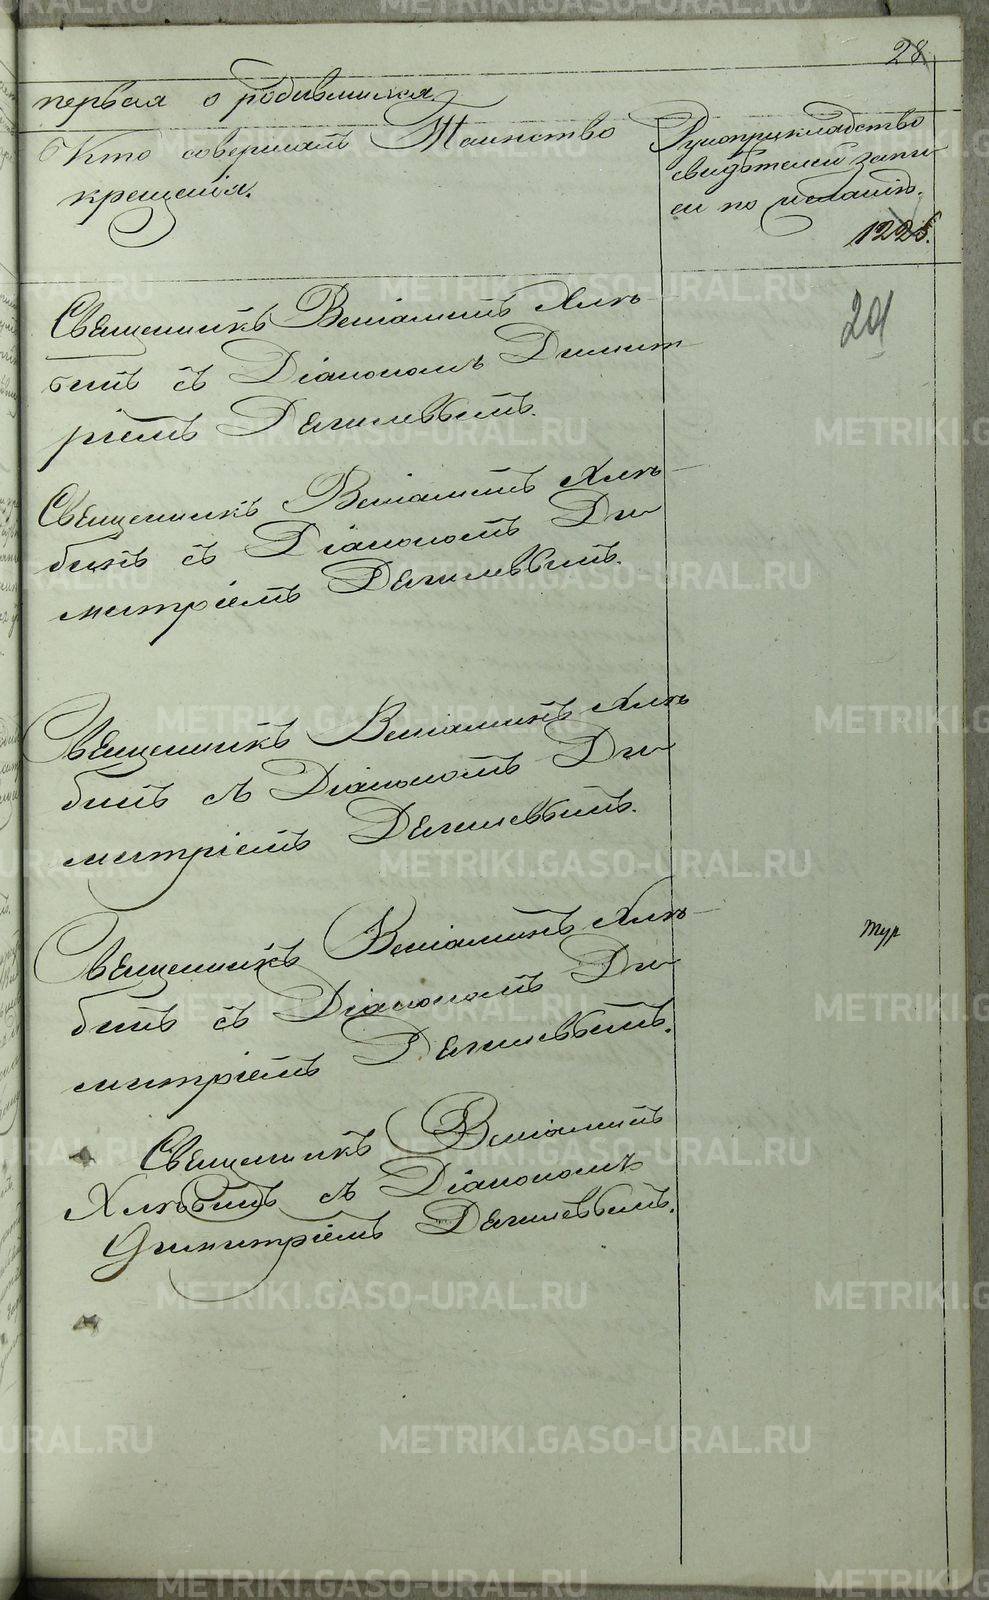 28
первая о родившихся.
Кто совершалъ Таинство
крещенія.
Рукоприкладство
свидѣтелей запи-
си по желанію.
1225.
Священникъ Веніаминъ Хлѣ-
бинъ съ Діакономъ Димит
ріемъ Дягилевымъ.
Священникъ Веніаминъ Хлѣ-
бинъ съ Діакономъ Ди-
митріемъ Дягилевымъ.
Священникъ Веніаминъ Хлѣ
бинъ съ Діакономъ Ди-
митріемъ Дягилевымъ.
Священникъ Веніаминъ Хлѣ-
бинъ съ Діакономъ Ди-
митріемъ Дягилевымъ.
Священникъ Веніаминъ
Хлѣбинъ съ Діакономъ
Димитріемъ Дягилевымъ.
METRIKI.GASO-URAL.RU